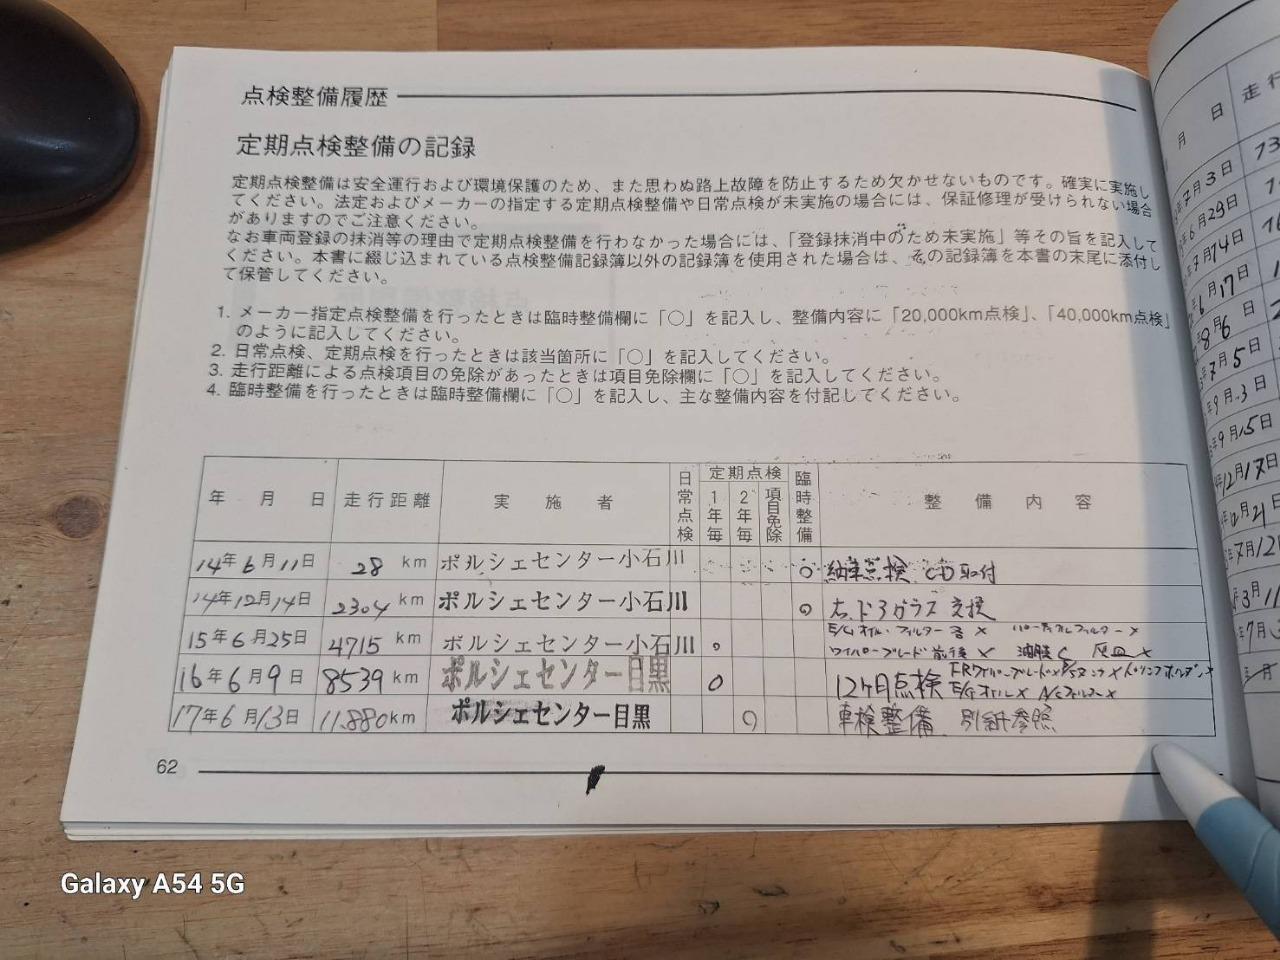 点検整備履歴
定期点検整備の記録
定期点検整備は安全運行および環境保護のため、また思わぬ路上故障を防止するため欠かせないものです。確実に実施し
てください。法定およびメーカーの指定する定期点検整備や日常点検が未実施の場合には、保証修理が受けられない場合
がありますのでご注意ください。
なお車両登録の抹消等の理由で定期点検整備を行わなかった場合には、「登録抹消中のため未実施」等その旨を記入して
ください。本書に綴じ込まれている点検整備記録簿以外の記録簿を使用された場合は、その記録簿を本書の末尾に添付し
て保管してください。
1. メーカー指定点検整備を行ったときは臨時整備欄に「○」を記入し、整備内容に「20,000km点検」、「40,000km点検」
のように記入してください。
2. 日常点検、定期点検を行ったときは該当箇所に「○」を記入してください。
3. 走行距離による点検項目の免除があったときは項目免除欄に「○」を記入してください。
4. 臨時整備を行ったときは臨時整備欄に「○」を記入し、主な整備内容を付記してください。
年 月 日 走行距離 実施者 日常点検 定期点検 1年毎 2年毎 項目免除 臨時整備 整備内容
14年6月11日 28 km ポルシェセンター小石川 ○ 納車点検 CD取付
14年12月14日 2304 km ポルシェセンター小石川 ○ 右ドアガラス交換
15年6月25日 4715 km ポルシェセンター小石川 ○ E/Gオイル・フィルター
ワイパーブレード前後 × 油膜
16年6月9日 8539 km ポルシェセンター目黒 ○ 12ヶ月点検 E/Gオイル×
17年6月13日 11,880km ポルシェセンター目黒 ○ 車検整備 別紙参照
62
月 日 走行
年7月3日
年6月29日
年7月14日
6月17日
8月6日
年7月5日
年9月3日
年9月15日
年12月17日
年12月21日
年7月12日
年3月11日
年7月
月
Galaxy A54 5G